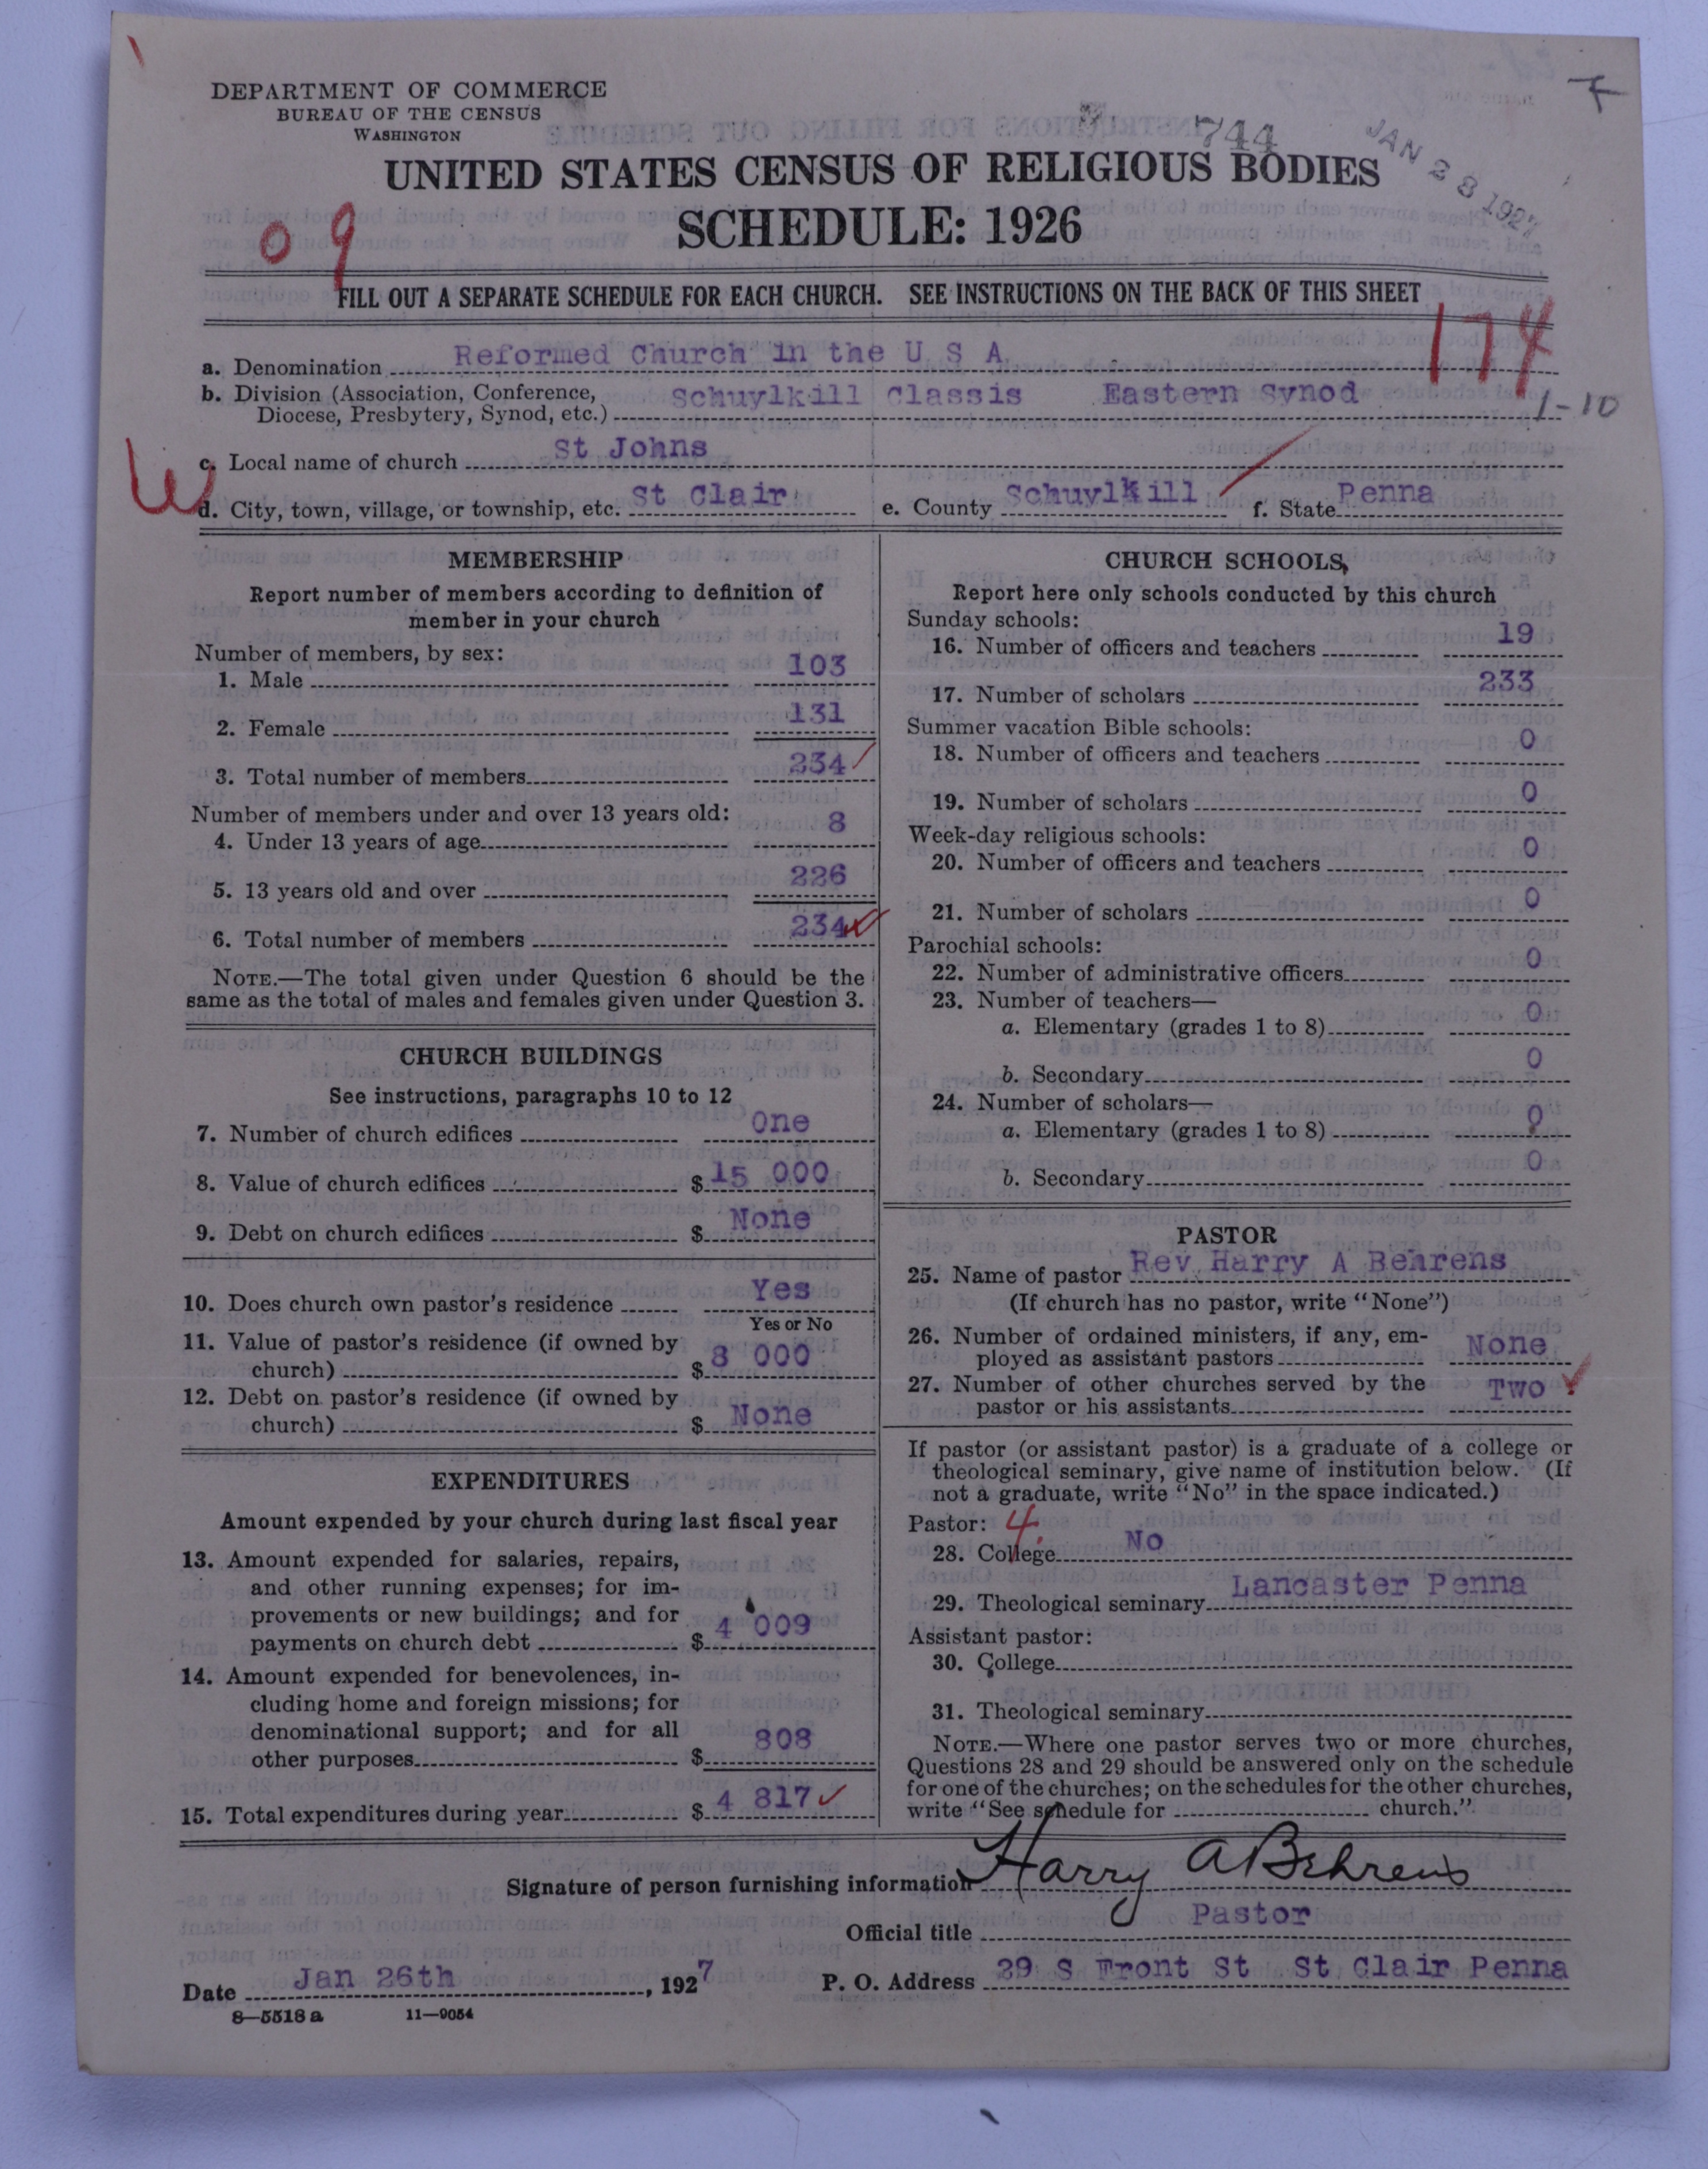 DEPARTMENT OF COMMERCE
BUREAU OF THE CENSUS
WASHINGTON
744
JAN 28 1927
UNITED STATES CENSUS OF RELIGIOUS BODIES
SCHEDULE: 1926
09
FILL OUT A SEPARATE SCHEDULE FOR EACH CHURCH. SEE INSTRUCTIONS ON THE BACK OF THIS SHEET
174
a. Denomination Reformed Church in the U S A
b. Division (Association, Conference,
Diocese, Presbytery, Synod, etc.) Schuylkill Classis Eastern Synod
1-10
c. Local name of church St Johns
W
d. City, town, village, or township, etc. St Clair e. County Schuylkill f. State Penna
MEMBERSHIP
Report number of members according to definition of
member in your church
Number of members, by sex:
1. Male 103
2. Female 131
3. Total number of members 234
Number of members under and over 13 years old:
4. Under 13 years of age 8
5. 13 years old and over 226
6. Total number of members 234
NOTE.—The total given under Question 6 should be the
same as the total of males and females given under Question 3.
CHURCH BUILDINGS
See instructions, paragraphs 10 to 12
7. Number of church edifices One
8. Value of church edifices $ 15 000
9. Debt on church edifices $ None
10. Does church own pastor's residence Yes
Yes or No
11. Value of pastor's residence (if owned by
church) $ 8 000
12. Debt on pastor's residence (if owned by
church) $ None
EXPENDITURES
Amount expended by your church during last fiscal year
13. Amount expended for salaries, repairs,
and other running expenses; for im-
provements or new buildings; and for
payments on church debt $ 4 009
14. Amount expended for benevolences, in-
cluding home and foreign missions; for
denominational support; and for all
other purposes $ 808
15. Total expenditures during year $ 4 817
CHURCH SCHOOLS
Report here only schools conducted by this church
Sunday schools:
16. Number of officers and teachers 19
17. Number of scholars 233
Summer vacation Bible schools:
18. Number of officers and teachers 0
19. Number of scholars 0
Week-day religious schools:
20. Number of officers and teachers 0
21. Number of scholars 0
Parochial schools:
22. Number of administrative officers 0
23. Number of teachers—
a. Elementary (grades 1 to 8) 0
b. Secondary 0
24. Number of scholars—
a. Elementary (grades 1 to 8) 0
b. Secondary 0
PASTOR
25. Name of pastor Rev Harry A Behrens
(If church has no pastor, write "None")
26. Number of ordained ministers, if any, em-
ployed as assistant pastors None
27. Number of other churches served by the
pastor or his assistants Two
If pastor (or assistant pastor) is a graduate of a college or
theological seminary, give name of institution below. (If
not a graduate, write "No" in the space indicated.)
Pastor: 4
28. College No
29. Theological seminary Lancaster Penna
Assistant pastor:
30. College
31. Theological seminary
NOTE.—Where one pastor serves two or more churches,
Questions 28 and 29 should be answered only on the schedule
for one of the churches; on the schedules for the other churches,
write "See schedule for church."
Signature of person furnishing information Harry A Behrens
Official title Pastor
Date Jan 26th, 1927 P. O. Address 29 S Front St St Clair Penna
8—5518 a 11—9054